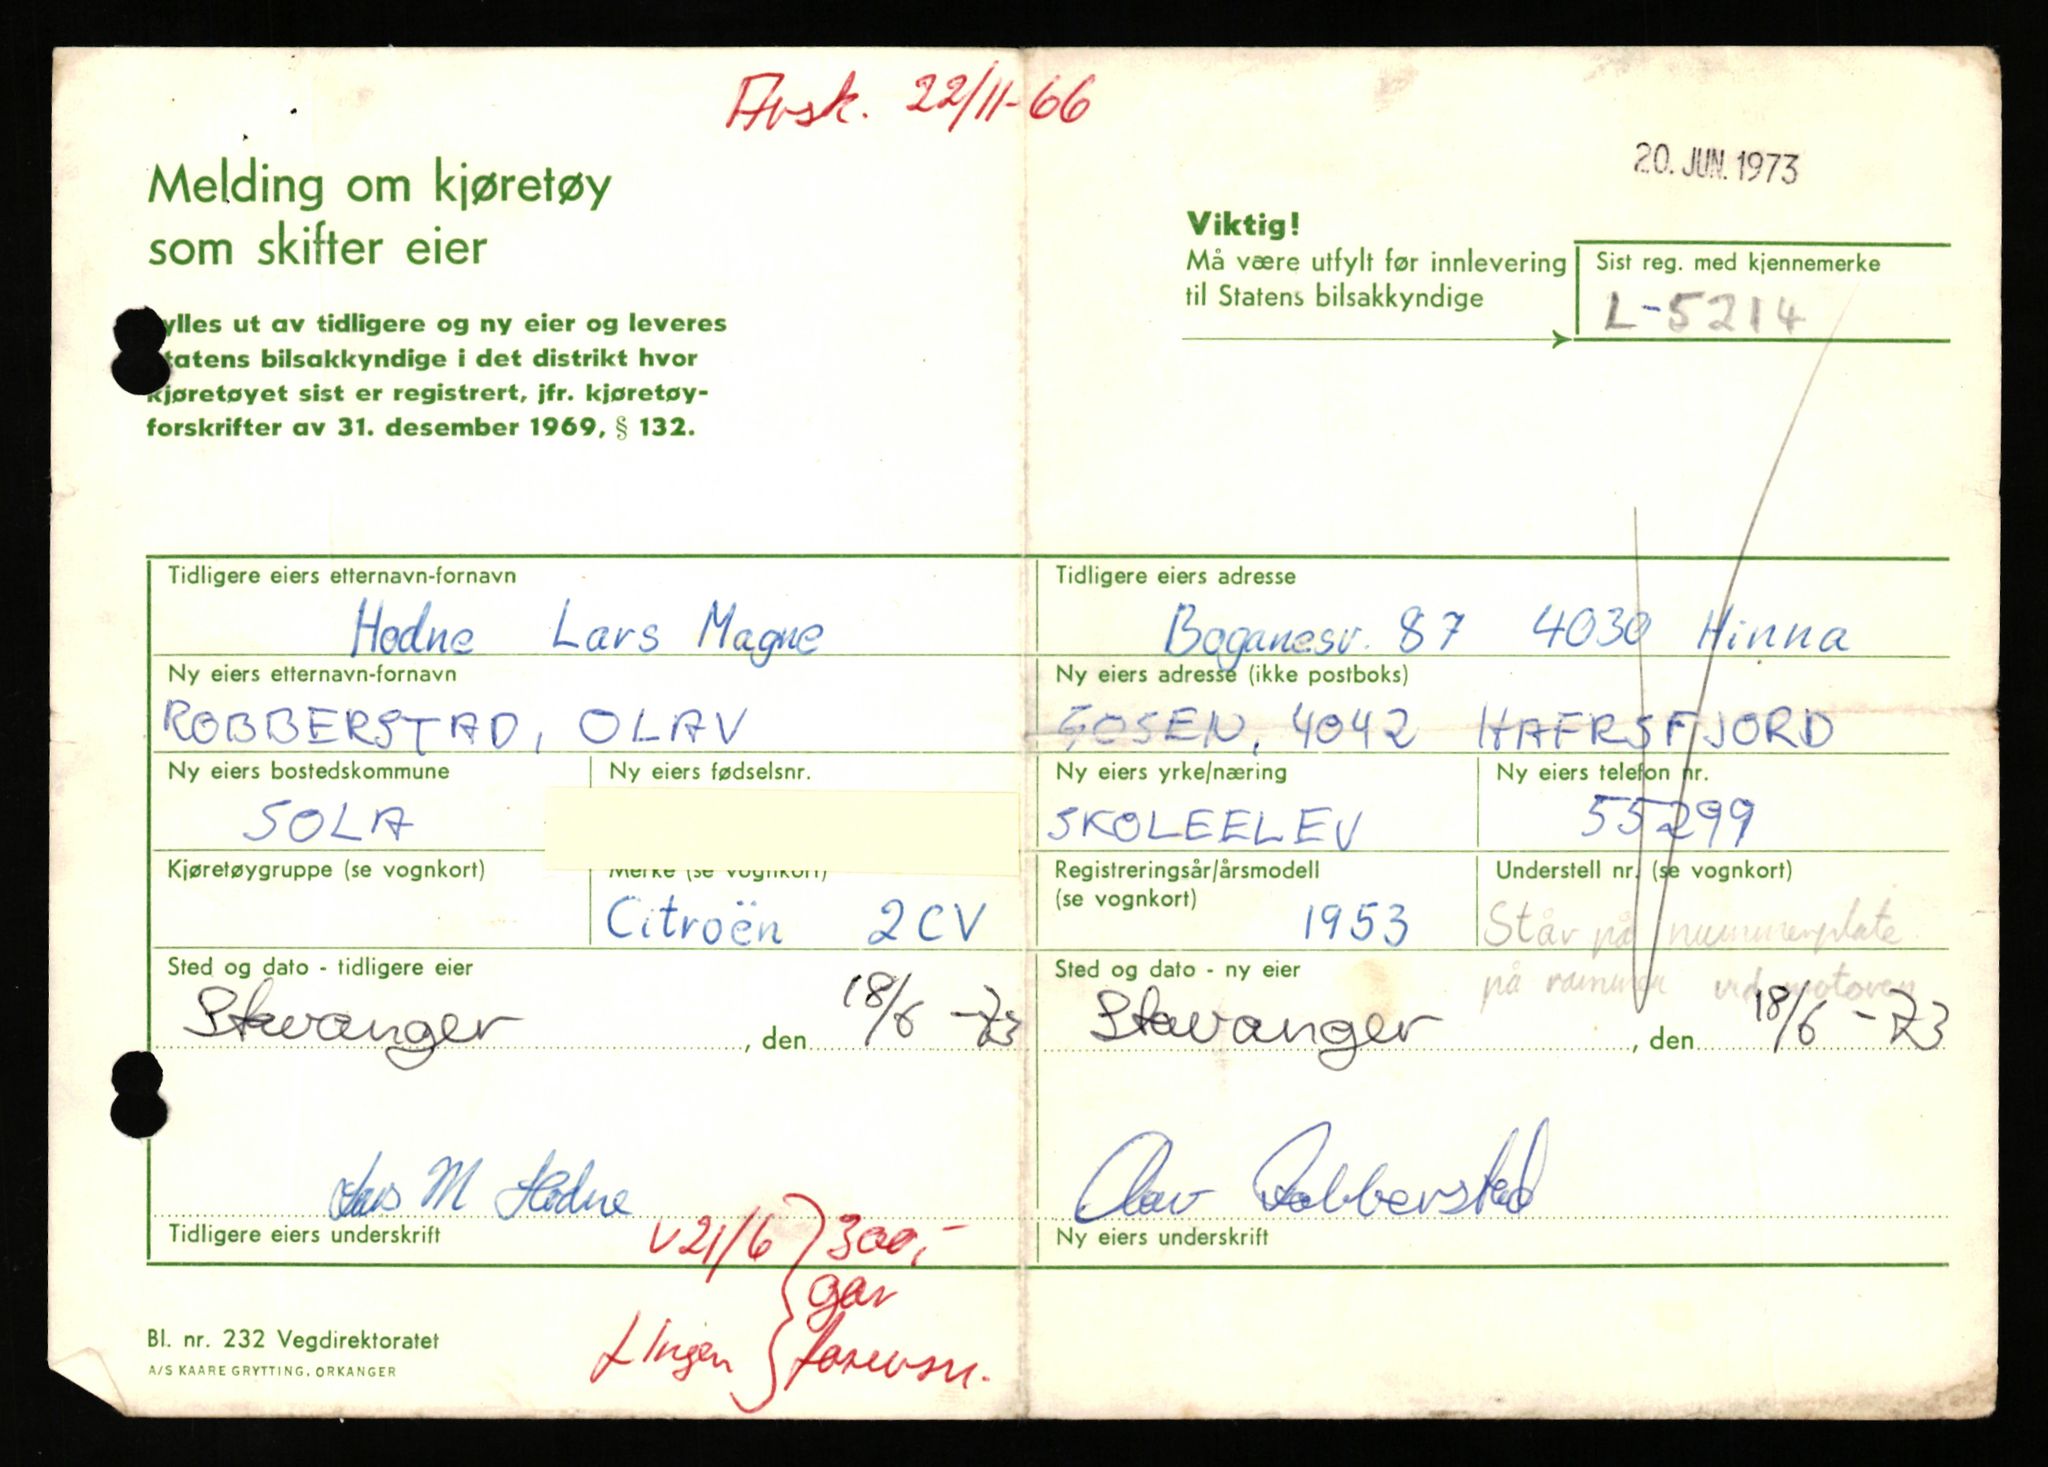 Avsk. 22/11-66
20. JUN. 1973
Melding om kjøretøy
som skifter eier
Viktig!
Må være utfylt før innlevering
til Statens bilsakkyndige
Sist reg. med kjennemerke
L-5214
ylles ut av tidligere og ny eier og leveres
tatens bilsakkyndige i det distrikt hvor
kjøretøyet sist er registrert, jfr. kjøretøy-
forskrifter av 31. desember 1969, § 132.
Tidligere eiers etternavn-fornavn
Hodne Lars Magne
Tidligere eiers adresse
Boganesv. 87 4030 Hinna
Ny eiers etternavn-fornavn
ROBBERSTAD, OLAV
Ny eiers adresse (ikke postboks)
GOSEN, 4042 HAFRSFJORD
Ny eiers bostedskommune
SOLA
Ny eiers fødselsnr.
Ny eiers yrke/næring
SKOLEELEV
Ny eiers telefon nr.
55299
Kjøretøygruppe (se vognkort)
Merke (se vognkort)
Citroën 2CV
Registreringsår/årsmodell
(se vognkort)
1953
Understell nr. (se vognkort)
Står på nummerplate
på rammen ved motoren
Sted og dato - tidligere eier
Stavanger, den 18/6 -73
Sted og dato - ny eier
Stavanger, den 18/6 -73
Lars M Hodne
Tidligere eiers underskrift
Olav Robberstad
Ny eiers underskrift
v 21/6 300,-
gav
Ingen
Bl. nr. 232 Vegdirektoratet
A/S KAARE GRYTTING, ORKANGER